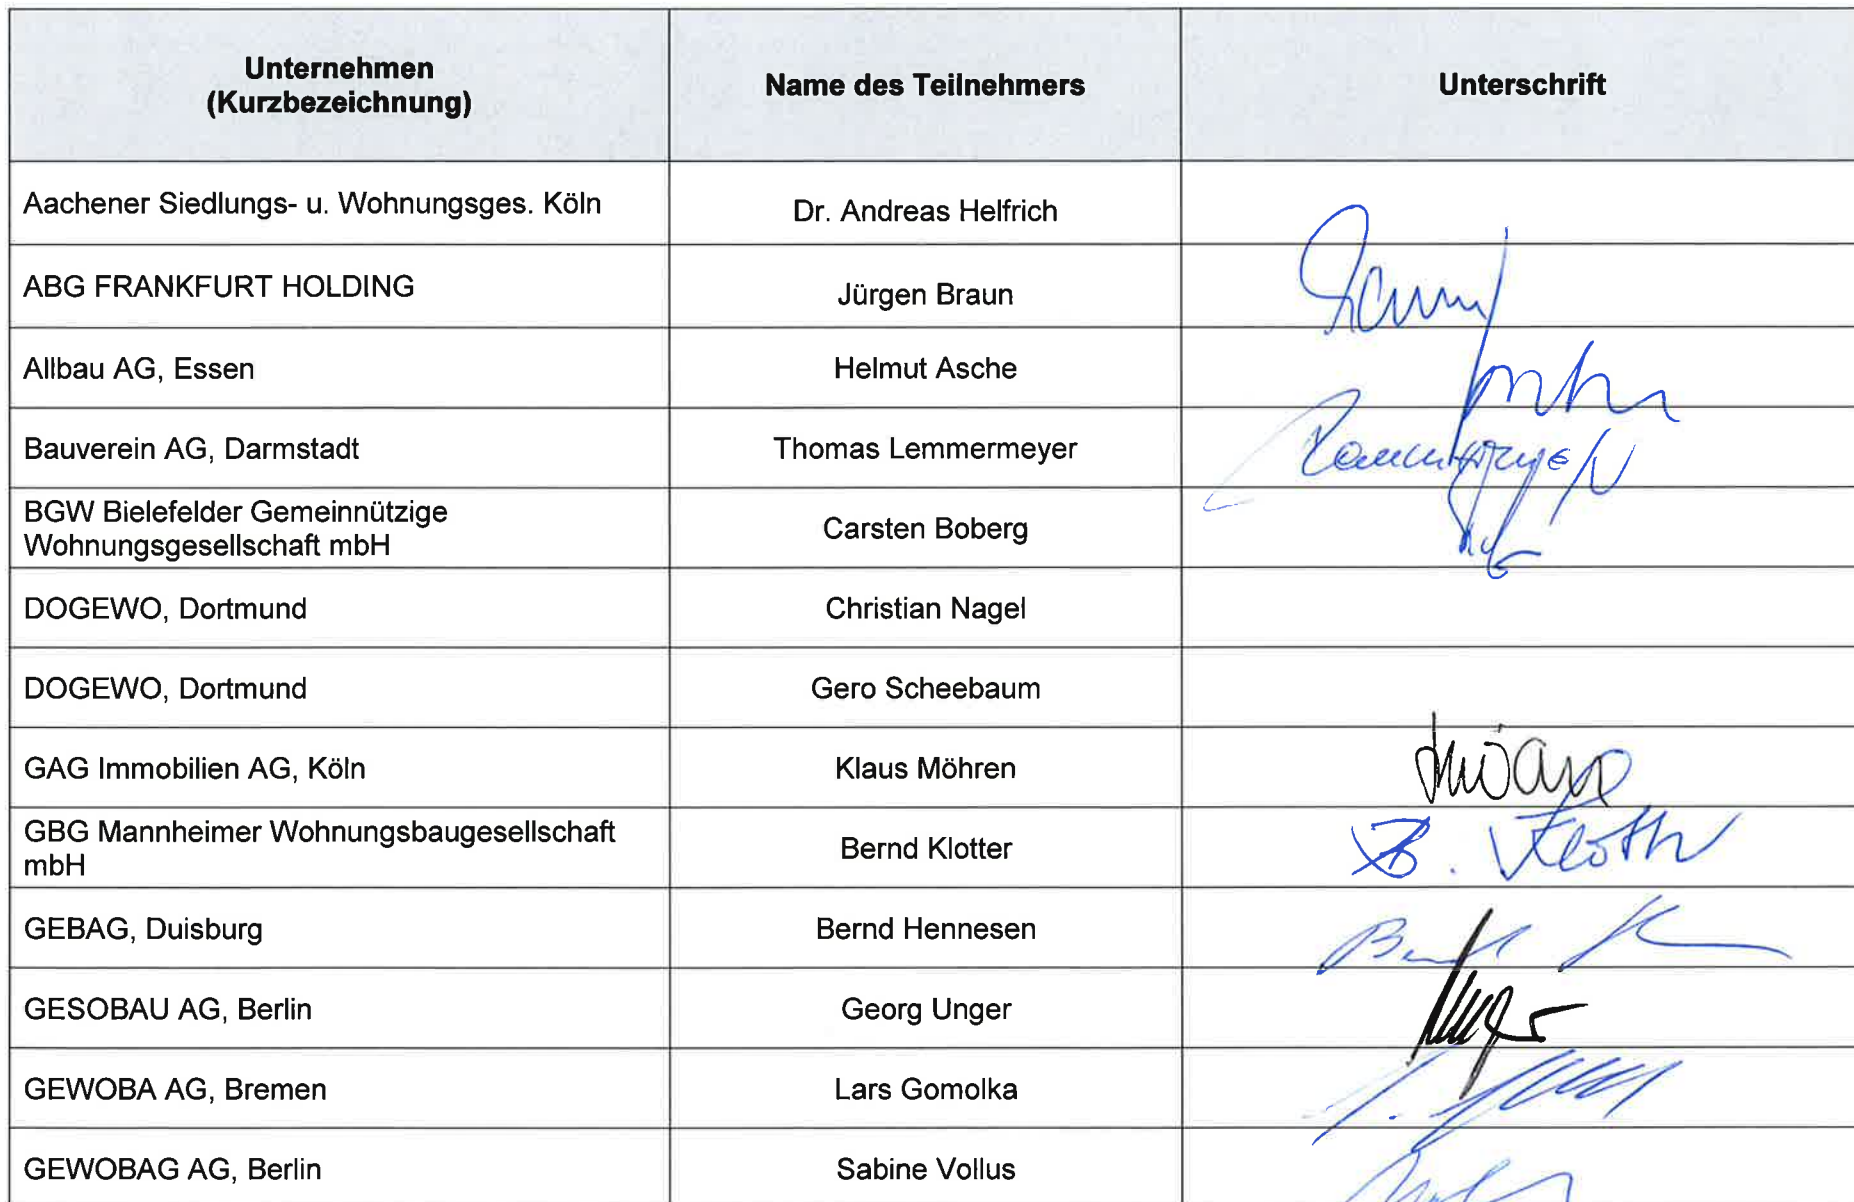 Unternehmen
(Kurzbezeichnung)
Name des Teilnehmers
Unterschrift
Aachener Siedlungs- u. Wohnungsges. Köln
Dr. Andreas Helfrich
ABG FRANKFURT HOLDING
Jürgen Braun
Allbau AG, Essen
Helmut Asche
Bauverein AG, Darmstadt
Thomas Lemmermeyer
BGW Bielefelder Gemeinnützige
Wohnungsgesellschaft mbH
Carsten Boberg
DOGEWO, Dortmund
Christian Nagel
DOGEWO, Dortmund
Gero Scheebaum
GAG Immobilien AG, Köln
Klaus Möhren
GBG Mannheimer Wohnungsbaugesellschaft
mbH
Bernd Klotter
GEBAG, Duisburg
Bernd Hennesen
GESOBAU AG, Berlin
Georg Unger
GEWOBA AG, Bremen
Lars Gomolka
GEWOBAG AG, Berlin
Sabine Vollus